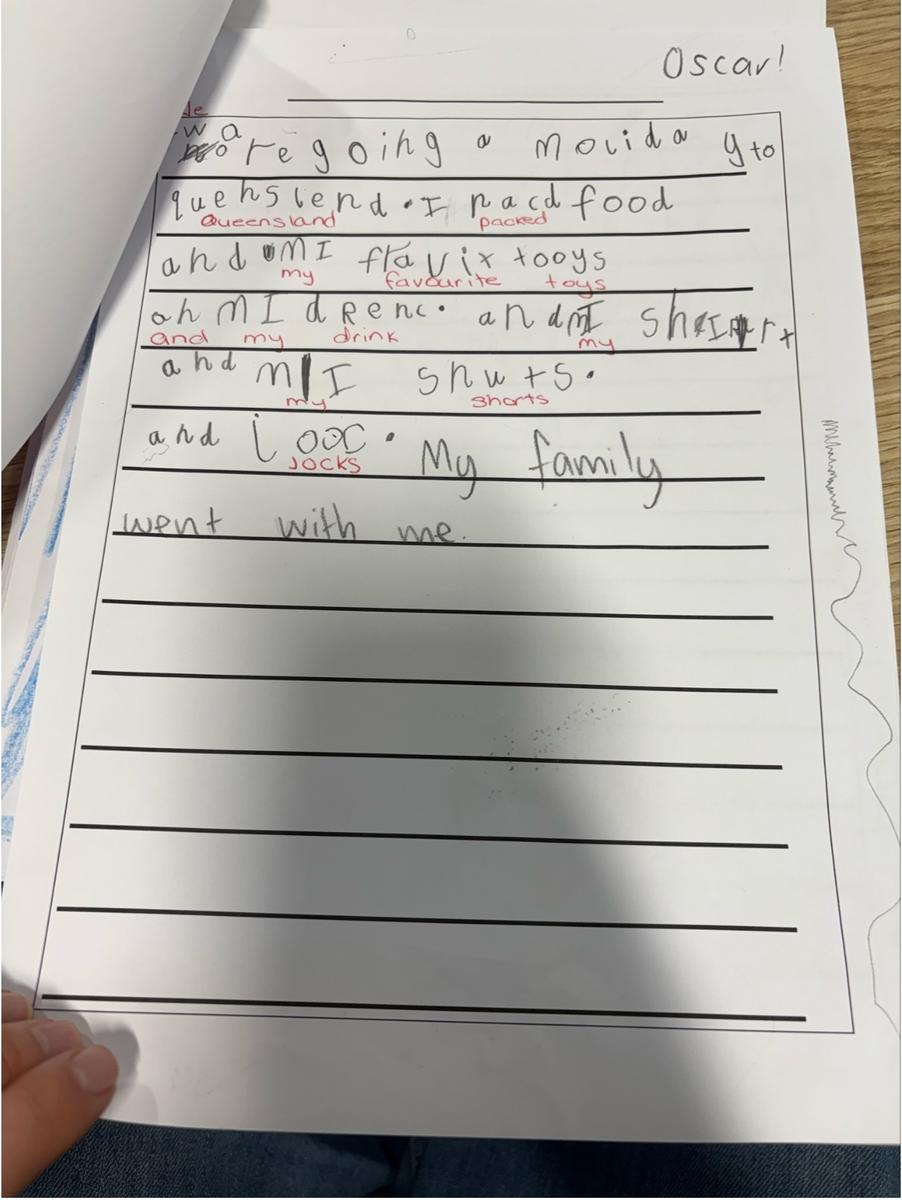 Oscar!
w a re going a molida y to
quehslend. I pacd food
Queensland packed
and MI flavix tooys
my favourite toys
ah MI dRenc. and MI shIrt
and my drink my
and MI shuts.
my shorts
and jooc. My family
Jocks
went with me.